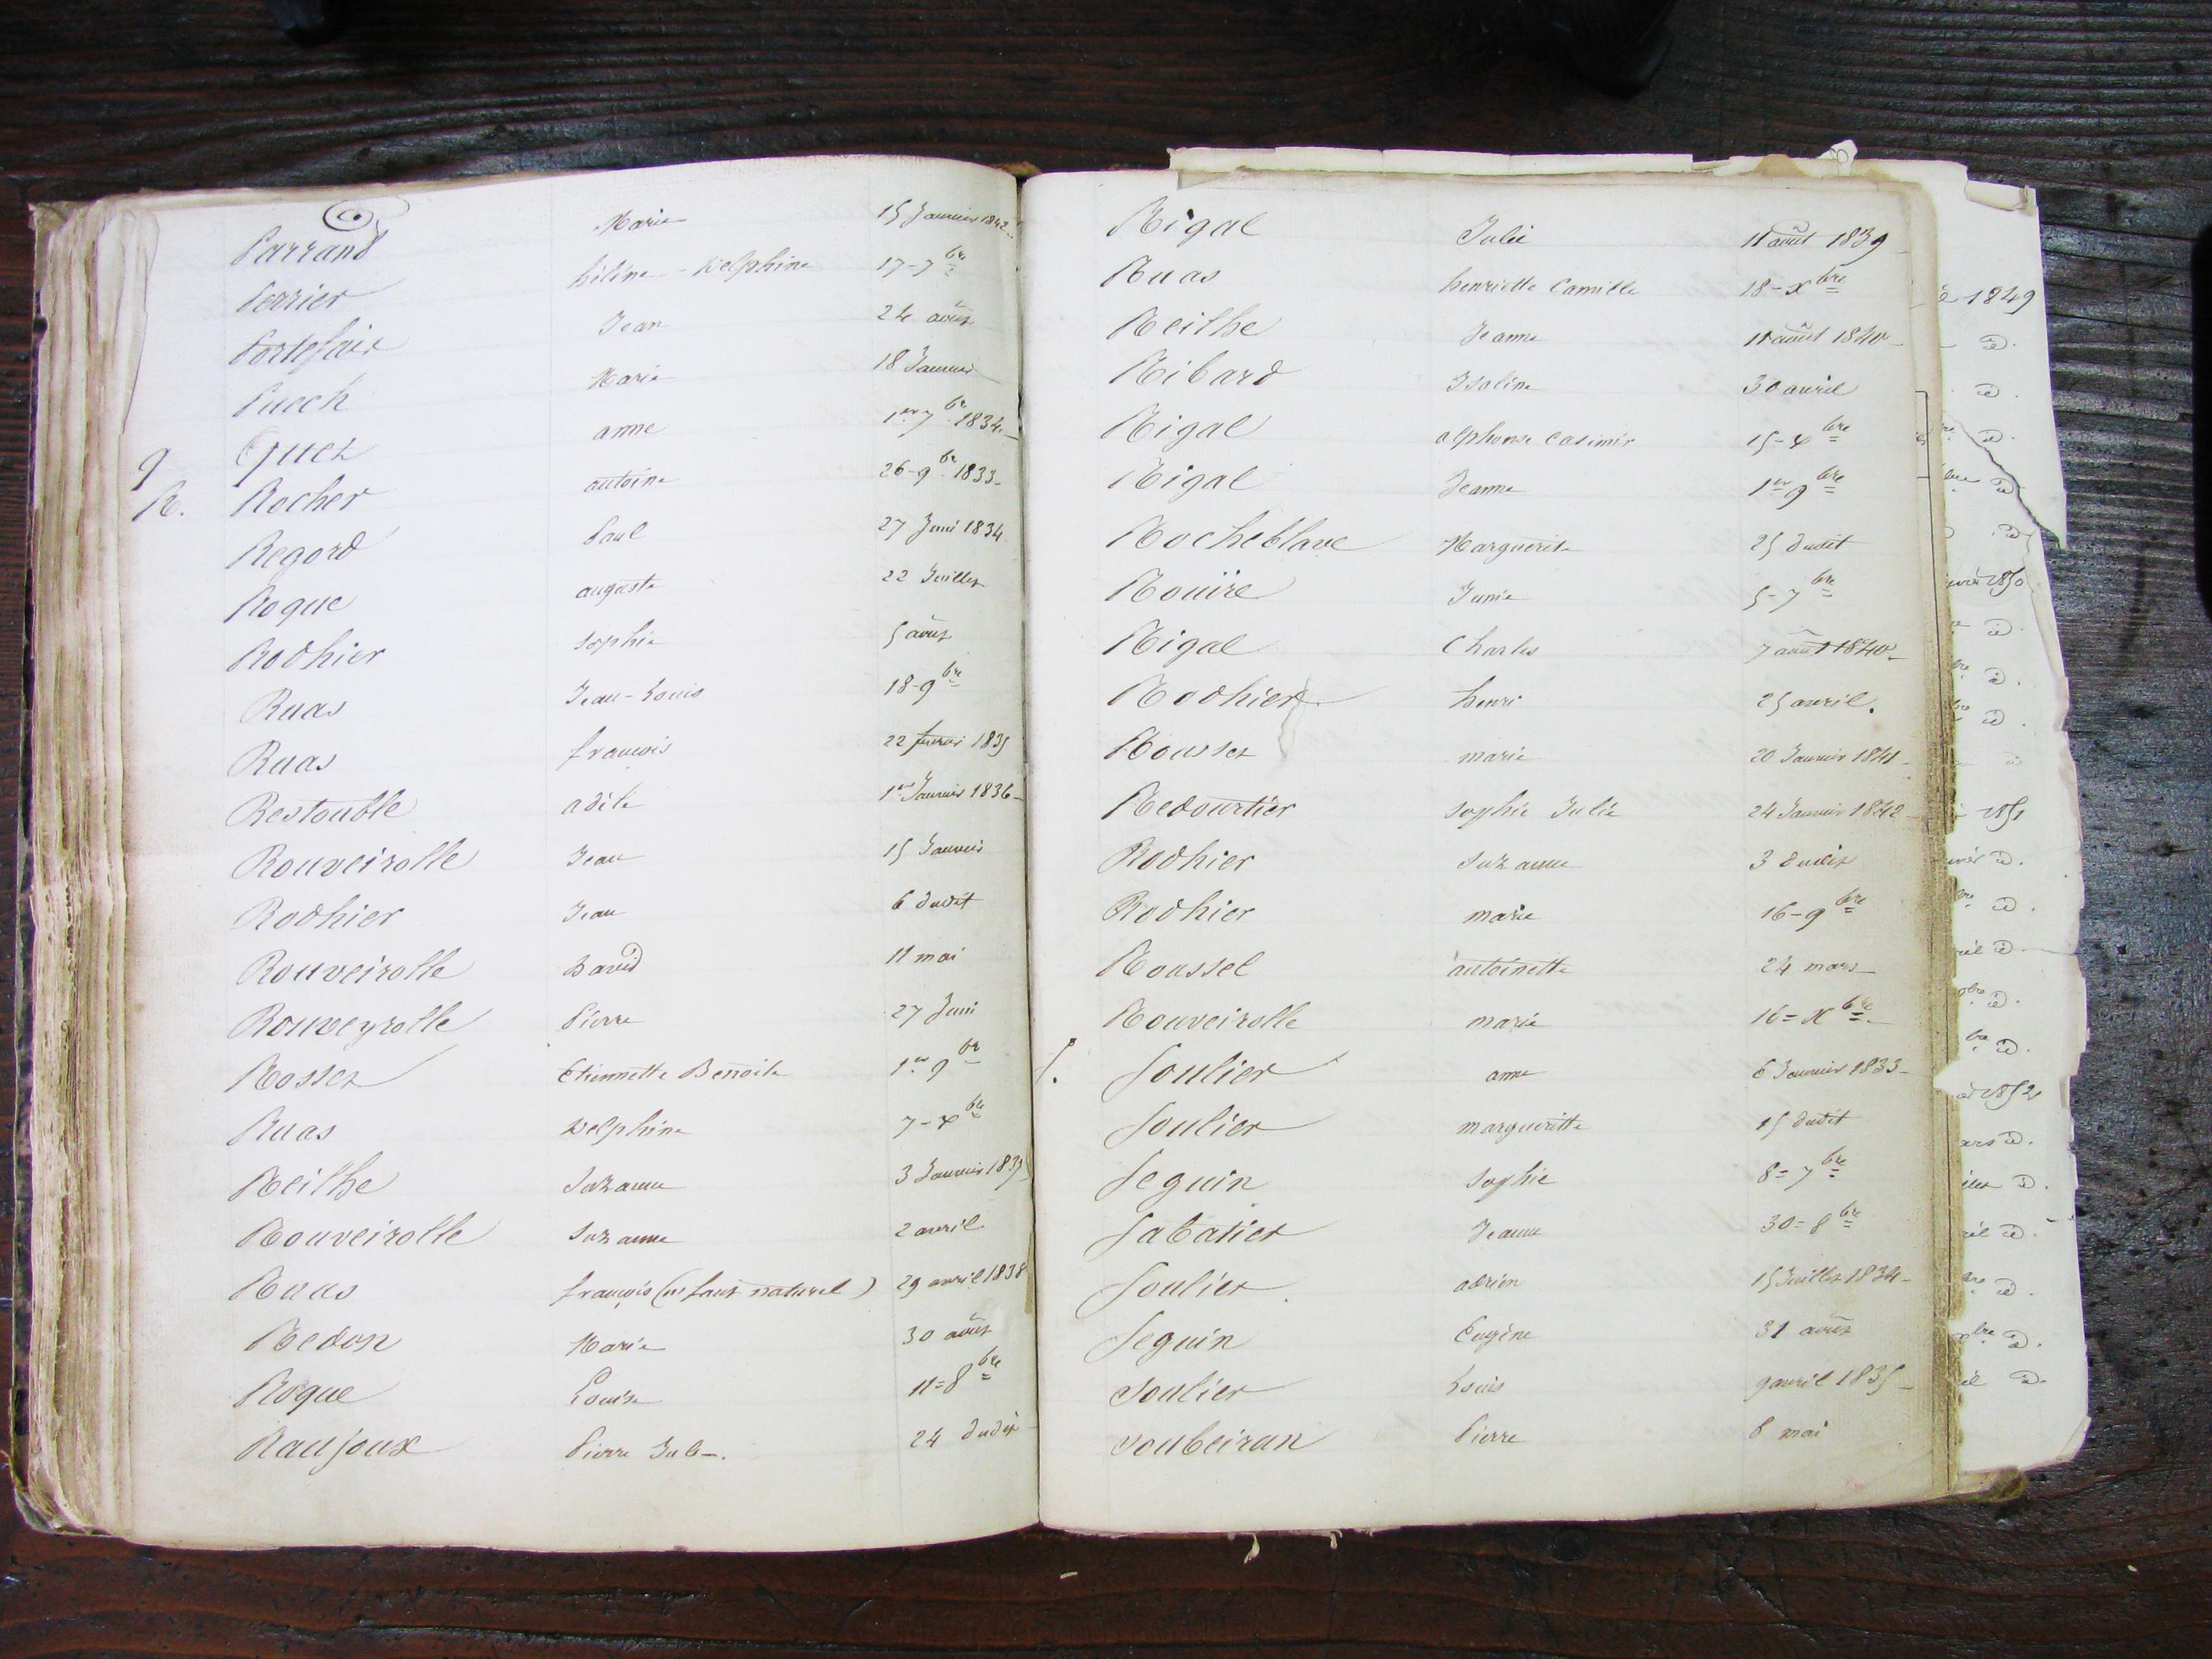 Parrand Marie 15 Janvier 1842
Perrier hélène - Delphine 17 - 7bre
Portefaix Jean 24 août
Puech Marie 18 Janvier
q Quet anne 1er 7bre 1834
R. Rocher antoine 26 - 9bre 1833
Regord Paul 27 Juin 1834
Roque auguste 22 Juillet
Rodhier sophie 5 août
Ruas Jean - Louis 18 - 9bre
Ruas françois 22 fevrier 1835
Restouble adèle 1er Janvier 1836
Rouveirolle Jean 15 Janvier
Rodhier Jean 6 dudit
Rouveirolle David 11 mai
Rouveyrolle Pierre 27 Juin
Rosset Etiennette Benoite 1er 9bre
Ruas Delphine 7 - xbre
Reilhe Suzanne 3 Janvier
Rouveirolle Suzanne 2 avril
Ruas françois (enfant naturel) 29 avril 1838
Redon Marie 30 août
Roque Louise 11 = 8bre
Raujoux Pierre Jule - . 24 dudit
Rigal Julie 11 août 1839
Ruas henriette Camille 18 - xbre
Reilhe Jeanne 11 août 1840
Ribard Isaline 30 avril
Rigal alphonse Casimir 15 - xbre
Rigal Jeanne 1er 9bre
Rocheblave Marguerite 25 dudit
Rouire Junie 5 - 7bre
Rigal Charles 7 août 1840
Rodhier henri 25 avril.
Rousset marie 20 Janvier 1841
Redourtier Sophie Julie 24 Janvier 1842
Rodhier Suzanne 3 dudit
Rodhier marie 16 - 9bre
Roussel antoinette 24 mars
Rouveirolle marie 16 = xbre
S. Soulier anne 6 Janvier 1833
Soulier margueritte 15 dudit
Seguin Sophie 8 = 7bre
Sabatier Jeanne 30 = 8bre
Soulier adrien 15 Juillet 1834
Seguin Eugène 31 août
Soulier Louis 9 avril 1835
Soubeiran Pierre 8 mai
1849
1850
1851
1852